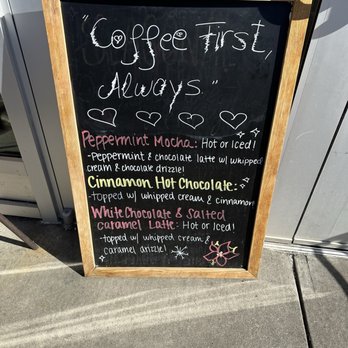 "Coffee First,
Always."
Peppermint Mocha: Hot or Iced!
-Peppermint & chocolate latte w/ whipped
cream & chocolate drizzle!
Cinnamon Hot Chocolate:
-topped w/ whipped cream & cinnamon!
White Chocolate & Salted
Caramel Latte: Hot or Iced!
-topped w/ whipped cream &
caramel drizzle!